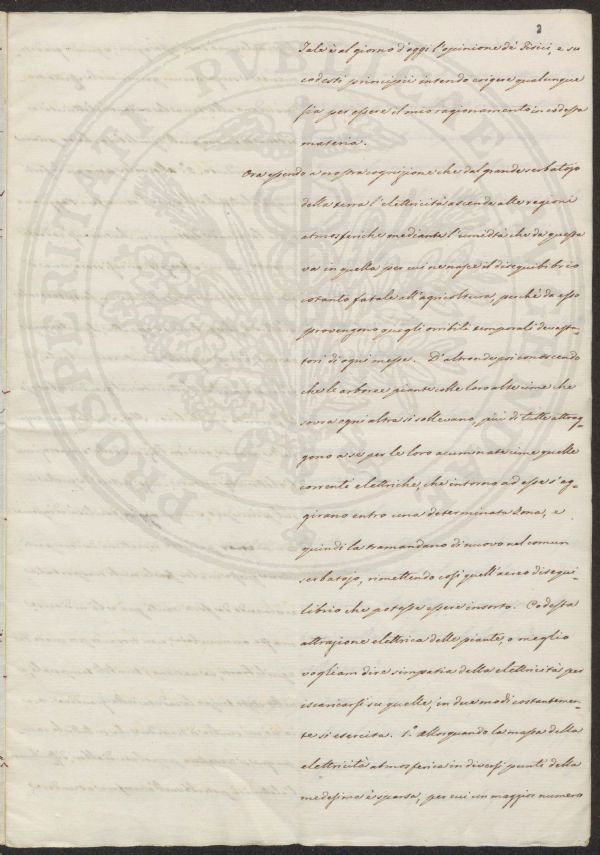 2
Tale è al giorno d'oggi l'opinione de' Fisici, e su
codesti principii intendo erigere qualunque
sia per essere il mio ragionamento in codesta
materia.
Ora essendo a nostra cognizione che dal grande serbatojo
della terra l'elettricità ascende alle regioni
atmosferiche mediante l'umidità che da questa
va in quella per cui ne nasce il disequilibrio
cotanto fatale all'agricoltura, perchè da esso
provengono quegli orribili temporali devasta-
tori di ogni messe. D'altronde poi conoscendo
che le arboree piante colle loro alte cime che
sovra ogni altra si sollevano, più di tutte attrag-
gono a sè per le loro acuminate cime quelle
correnti elettriche, che intorno ad esse s'ag-
girano entro una determinata Zona, e
quindi la tramandano di nuovo nel comun
serbatojo, rimettendo così quell'aereo disequi-
librio che potesse essere insorto. Codesta
attrazione elettrica delle piante, o meglio
vogliam dire simpatia della elettricità per
iscaricarsi su quelle, in due modi costantemen-
te si esercita. 1.° Allorquando la massa della
elettricità atmosferica in diversi punti della
medesima è sparsa, per cui un maggior numero
PROSPERITATI PVBLICAE AVGENDAE